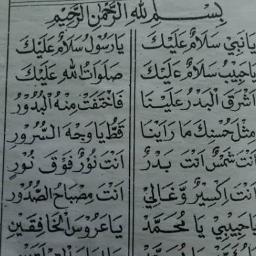 بِسْمِ اللهِ الرَّحْمٰنِ الرَّحِيْمِ
يَا نَبِيْ سَلَامٌ عَلَيْكَ يَا رَسُوْلْ سَلَامٌ عَلَيْكَ
يَا حَبِيْبْ سَلَامٌ عَلَيْكَ صَلَوَاتُ اللهِ عَلَيْكَ
اَشْرَقَ الْبَدْرُ عَلَيْنَا فَاخْتَفَتْ مِنْهُ الْبُدُوْرُ
مِثْلَ حُسْنِكَ مَا رَاَيْنَا قَطُّ يَا وَجْهَ السُّرُوْرِ
اَنْتَ شَمْسٌ اَنْتَ بَدْرٌ اَنْتَ نُوْرٌ فَوْقَ نُوْرٍ
اَنْتَ اِكْسِيْرٌ وَّغَالِيْ اَنْتَ مِصْبَاحُ الصُّدُوْرِ
يَا حَبِيْبِيْ يَا مُحَمَّدْ يَا عَرُوْسَ الْخَافِقَيْنِ